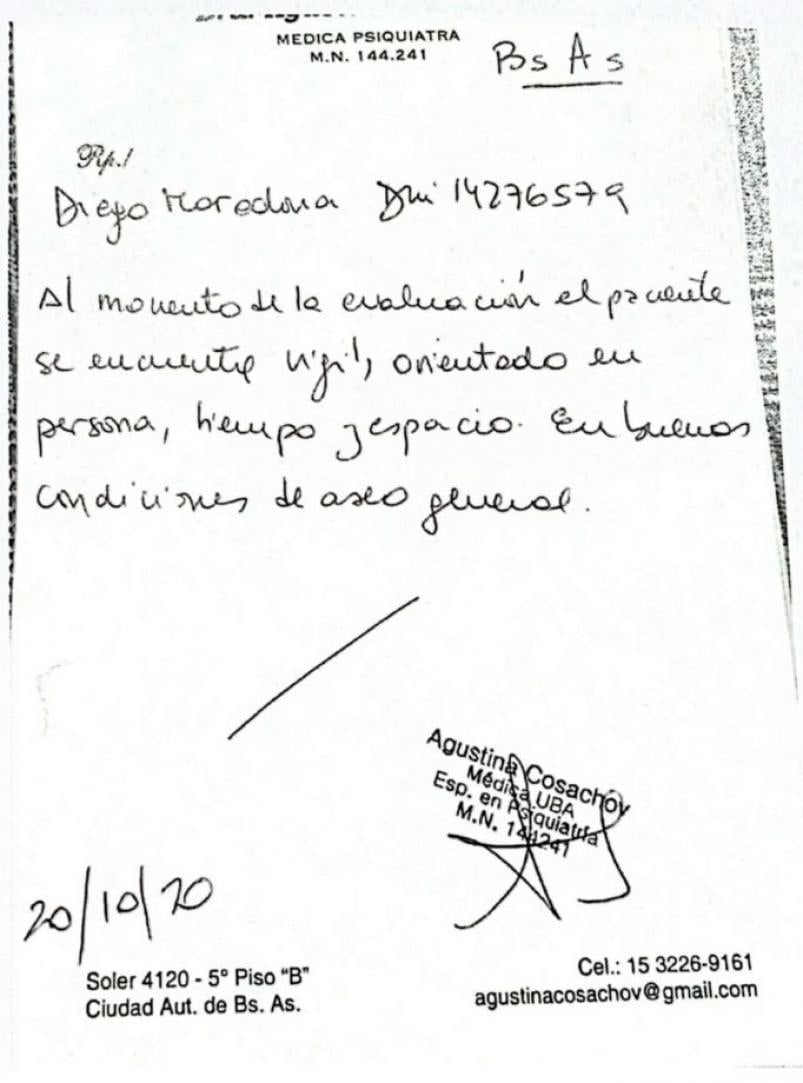 MEDICA PSIQUIATRA
M.N. 144.241
Bs As
Rp./
Diego Maradona Dni 14276579
Al momento de la evaluación el paciente
se encuentra vigil, orientado en
persona, tiempo y espacio. En buenos
condiciones de aseo general.
Agustina Cosachov
Médica UBA
Esp. en Psiquiatría
M.N. 144241
20/10/20
Soler 4120 - 5° Piso "B"
Ciudad Aut. de Bs. As.
Cel.: 15 3226-9161
agustinacosachov@gmail.com